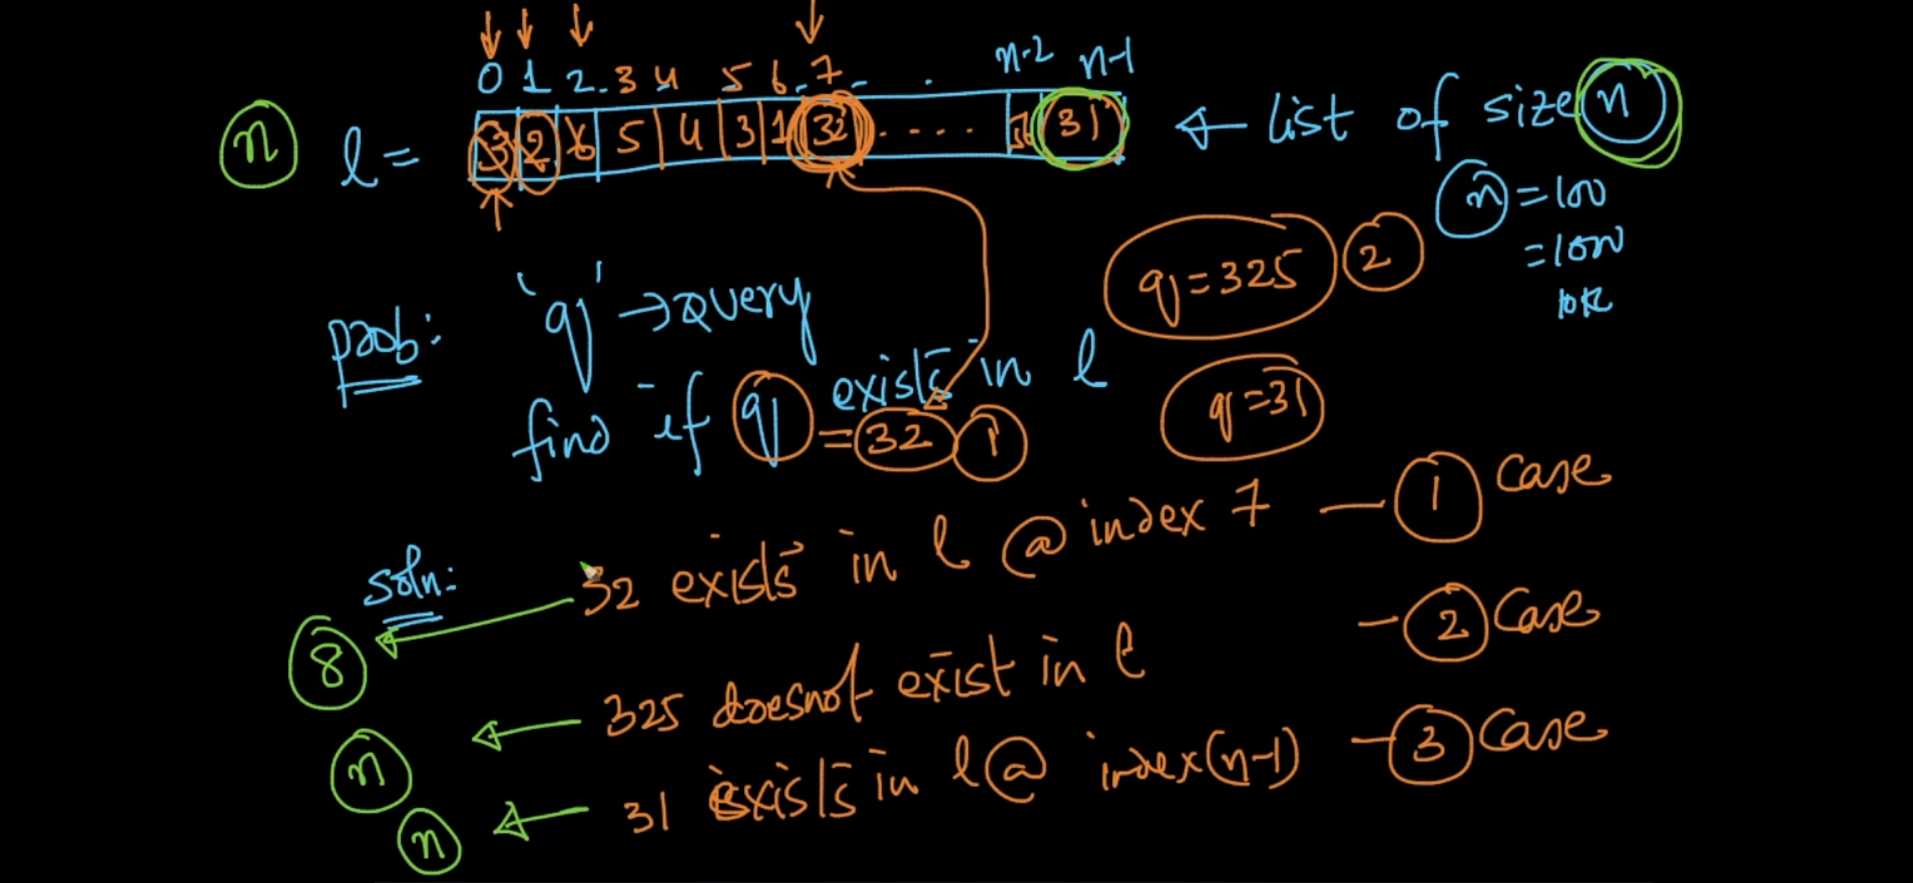 0 1 2 3 4 5 6 7 n-2 n-1
n l = 3 2 6 5 4 3 1 32 .... 31 ← list of size n
n = 100
= 1000
10K
prob: 'q' → query q = 325 2
find if q exists in l
= 32 1 q = 31
soln: 32 exists in l @ index 7 — 1 case
8
325 doesnot exist in l - 2 case
n
31 exists in l @ index (n-1) - 3 case
n